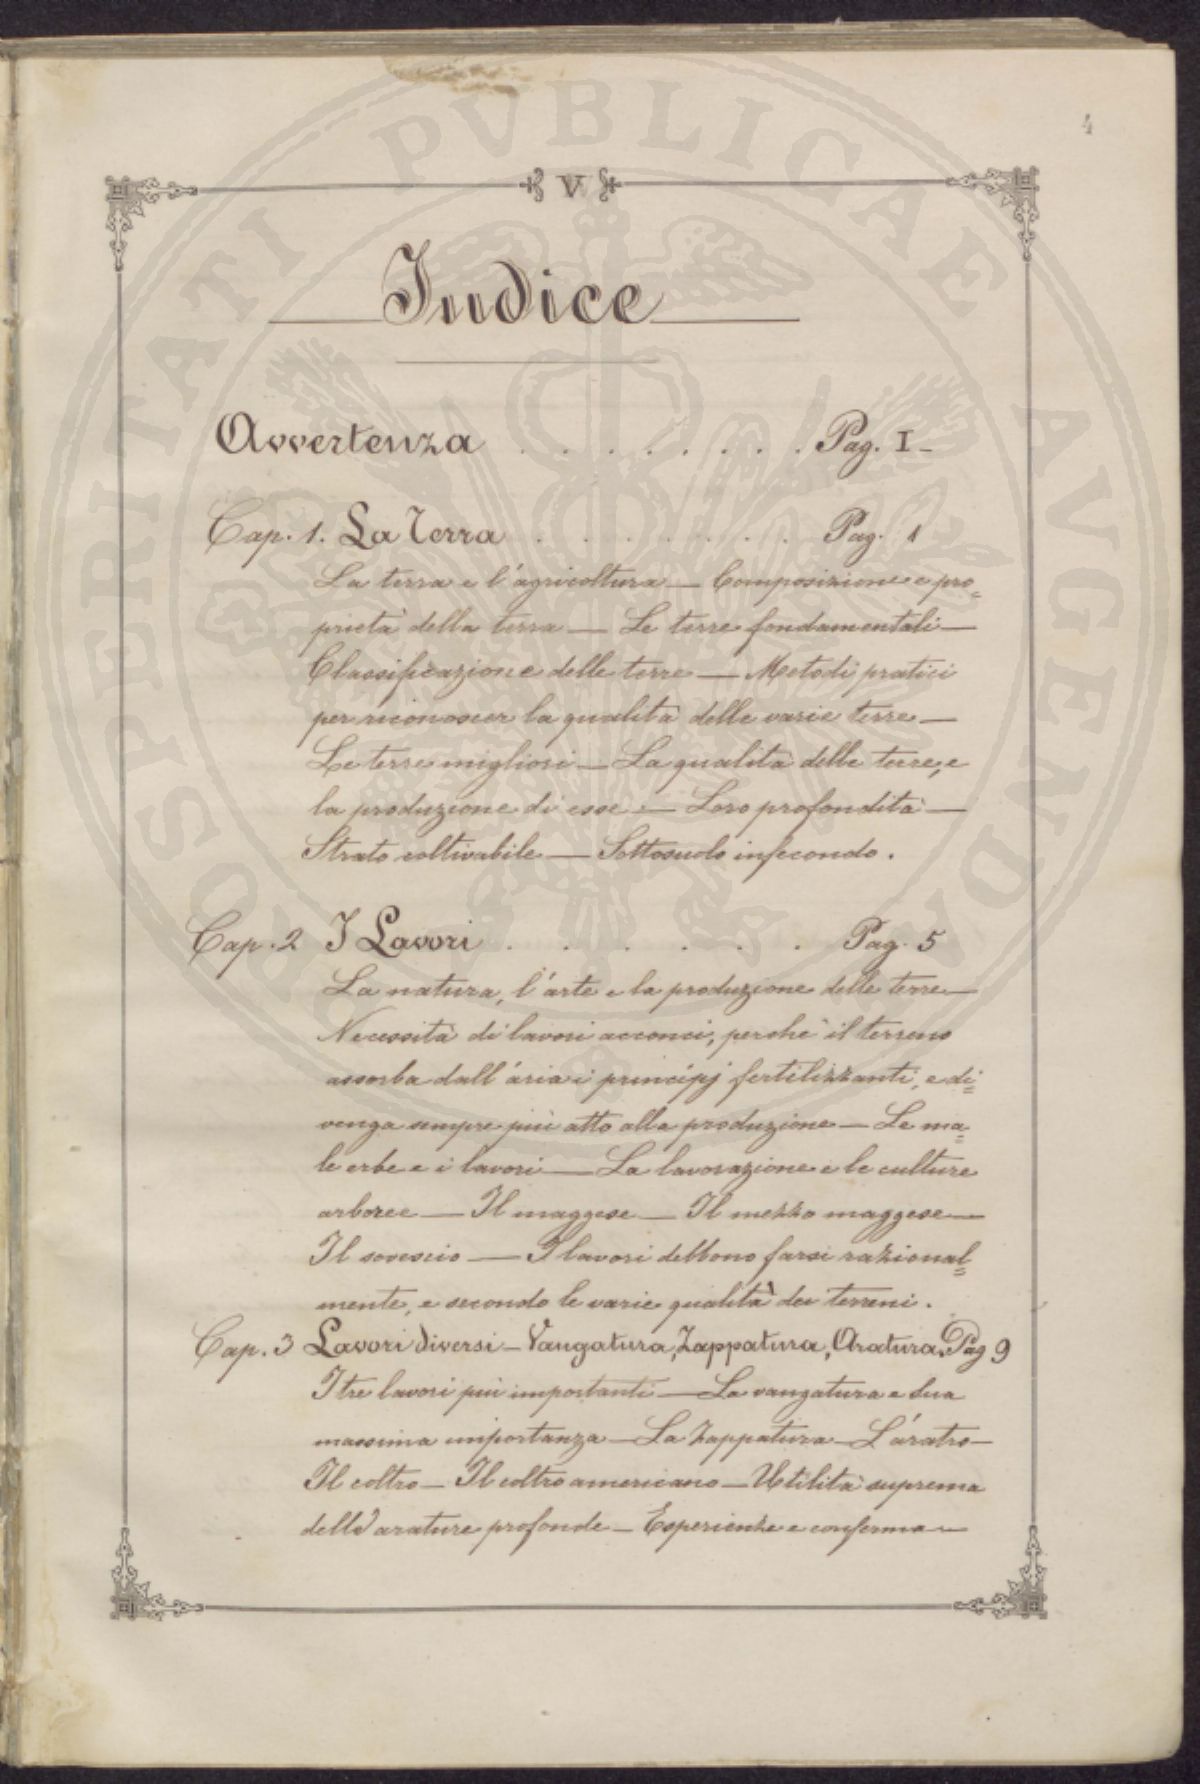 4
V
Indice
Avvertenza . . . . . . . . Pag. I -
Cap. 1. La Terra . . . . . . . Pag. 1
La terra e l'agricoltura — Composizione e pro=
prietà della terra — Le terre fondamentali —
Classificazione delle terre — Metodi pratici
per riconoscer la qualità delle varie terre —
Le terre migliori — La qualità delle terre, e
la produzione di esse — Loro profondità —
Strato coltivabile — Sottosuolo infecondo.
Cap. 2 I Lavori . . . . . . . Pag. 5
La natura, l'arte e la produzione delle terre —
Necessità di lavori acconci, perchè il terreno
assorba dall'aria i princípj fertilizzanti, e di=
venga sempre più atto alla produzione — Le ma=
le erbe e i lavori — La lavorazione e le culture
arboree — Il maggese — Il mezzo maggese —
Il sovescio — I lavori debbono farsi razional=
mente, e secondo le varie qualità dei terreni.
Cap. 3 Lavori diversi — Vangatura, Zappatura, Aratura. Pag 9
I tre lavori più importanti — La vangatura e sua
massima importanza — La Zappatura — L'aratro —
Il coltro — Il coltro americano — Utilità suprema
delle arature profonde — Esperienze e conferma —
PROSPERITATI PVBLICAE AVGENDAE